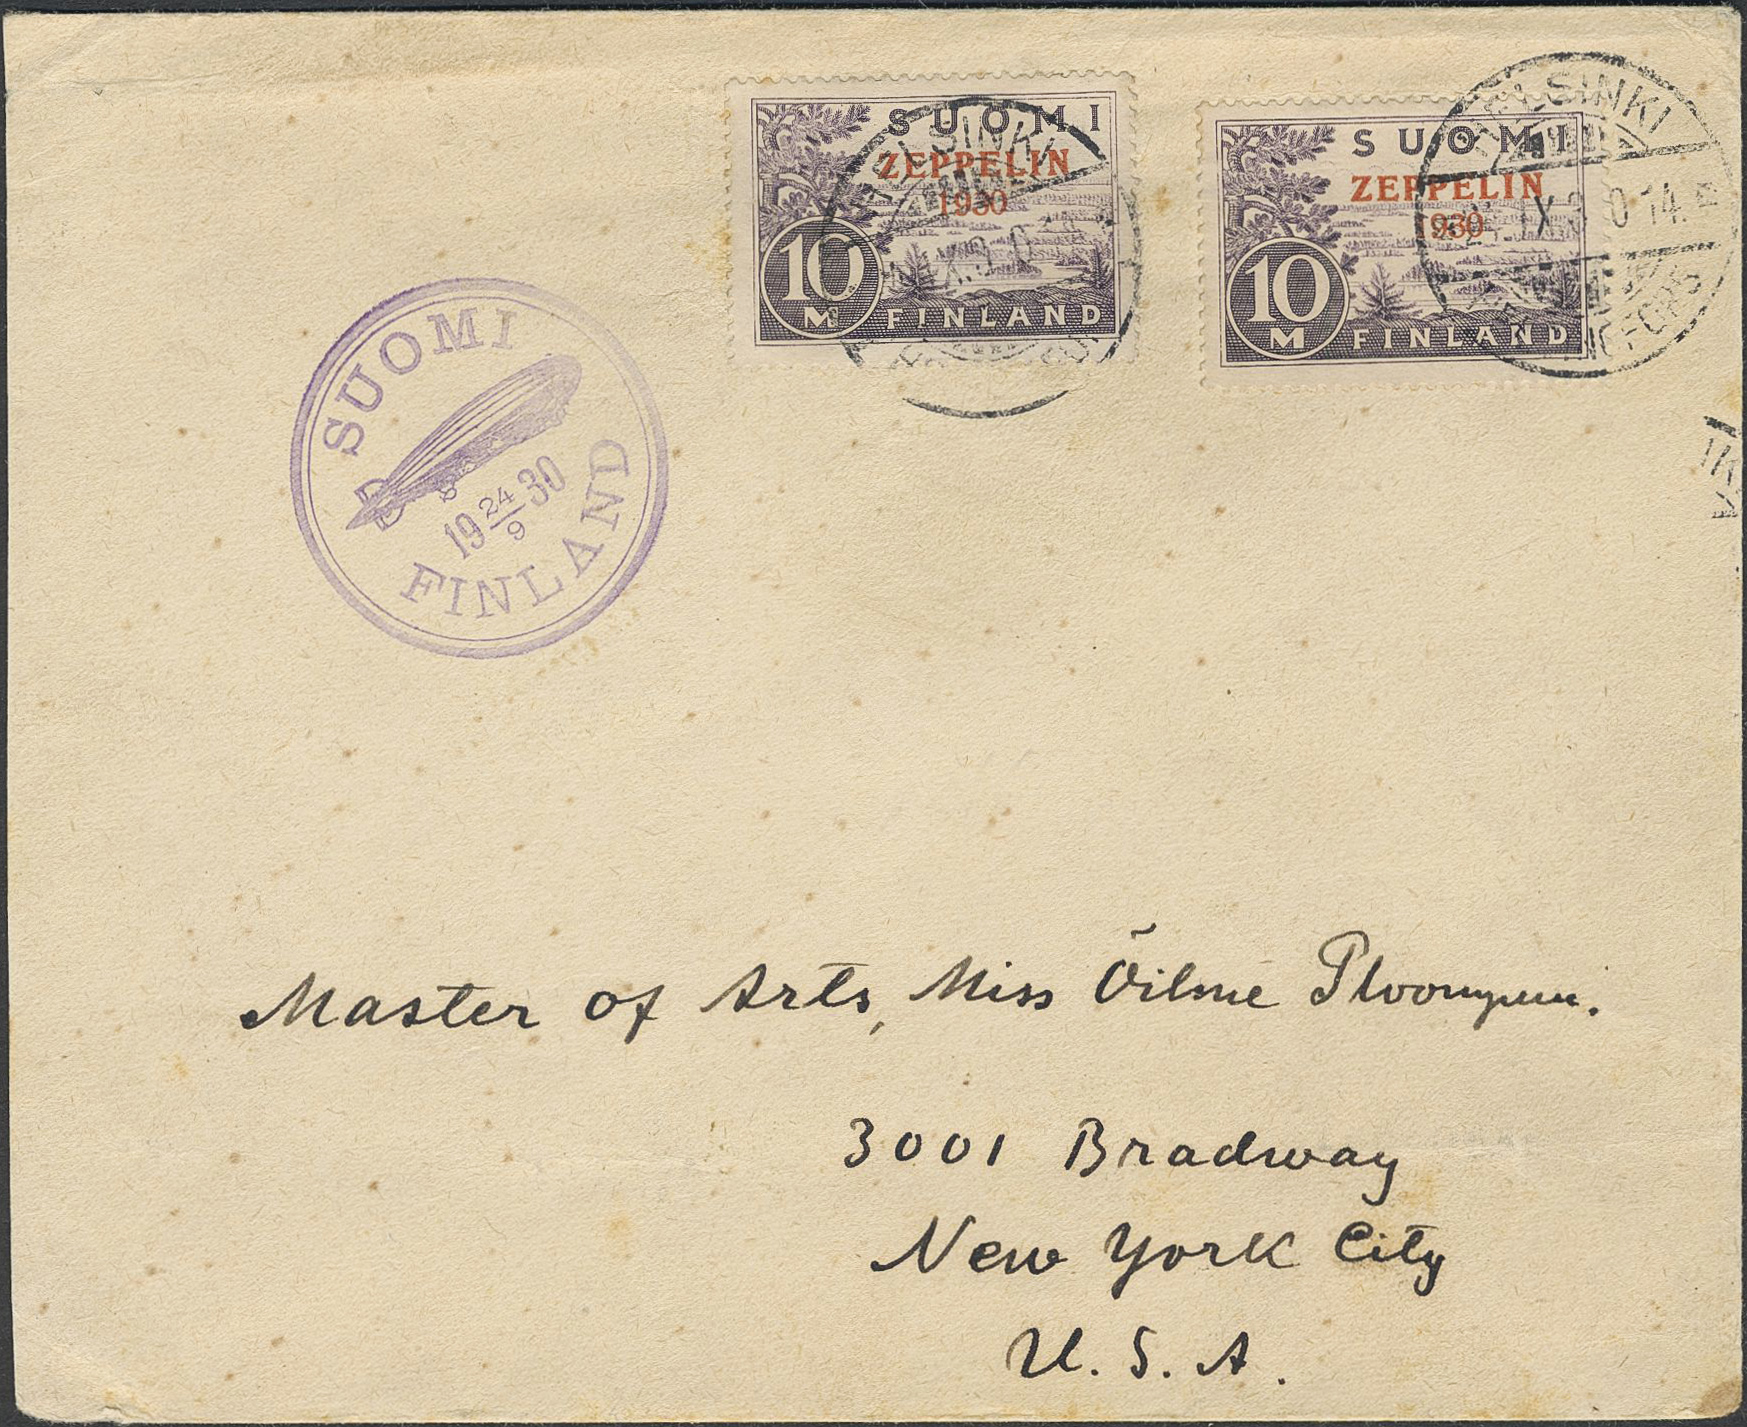 SUOMI
ZEPPELIN
1930
10
M
FINLAND
HELSINKI
SUOMI
ZEPPELIN
1930
10
M
FINLAND
HELSINKI
HELSINGFORS
SUOMI
19 24/9 30
FINLAND
Master of Arts, Miss Õilme
3001 Bradway
New York City
U. S. A.